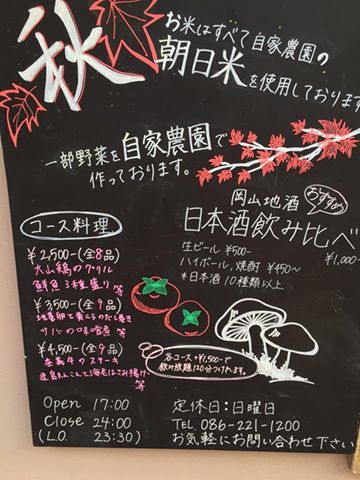 秋
お米はすべて自家農園の
朝日米を使用しております
一部野菜を自家農園で
作っております。
岡山地酒
おすすめ
日本酒飲み比べ
¥1,000-
生ビール ¥500-
ハイボール、焼酎 ¥450〜
*日本酒 10種類以上
コース料理
¥2,500-(全8品)
大山鶏のグリル
鮮魚3種盛り 等
¥3,500-(全9品)
だし巻き
サバの味噌煮 等
¥4,500-(全9品)
牛のステーキ
れんこんと海老はさみ揚げ
等
各コース+¥1,500-で
飲み放題120分つけれます。
Open 17:00
Close 24:00
(L.O. 23:30)
定休日:日曜日
TEL. 086-221-1200
お気軽にお問い合わせ下さい